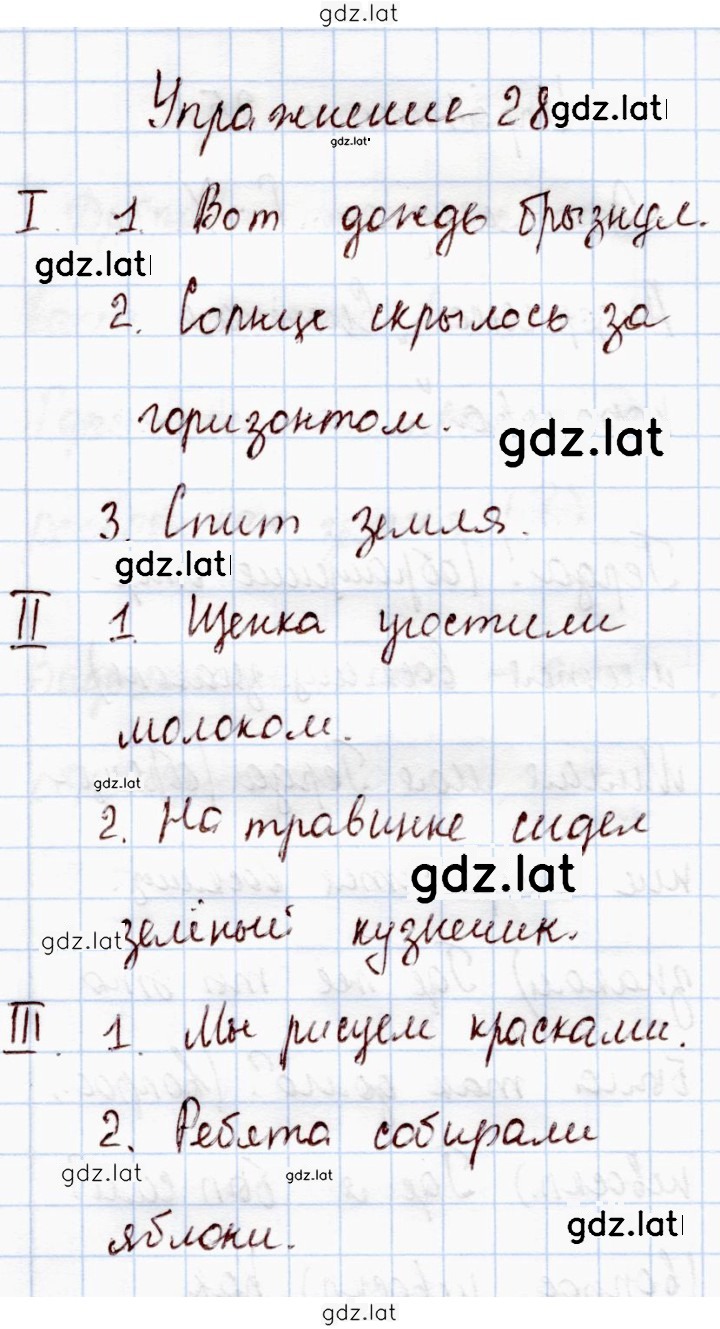 gdz.lat
Упражнение 28 gdz.lat
gdz.lat
I. 1. Вот дождь брызнул.
gdz.lat
2. Солнце скрылось за
горизонтом.
gdz.lat
3. Спит земля.
gdz.lat
II 1. Щенка угостили
молоком.
gdz.lat
2. На травинке сидел
gdz.lat
gdz.lat зелёный кузнечик.
III. 1. Мы рисуем красками.
2. Ребята собирали
gdz.lat gdz.lat
яблоки. gdz.lat
gdz.lat